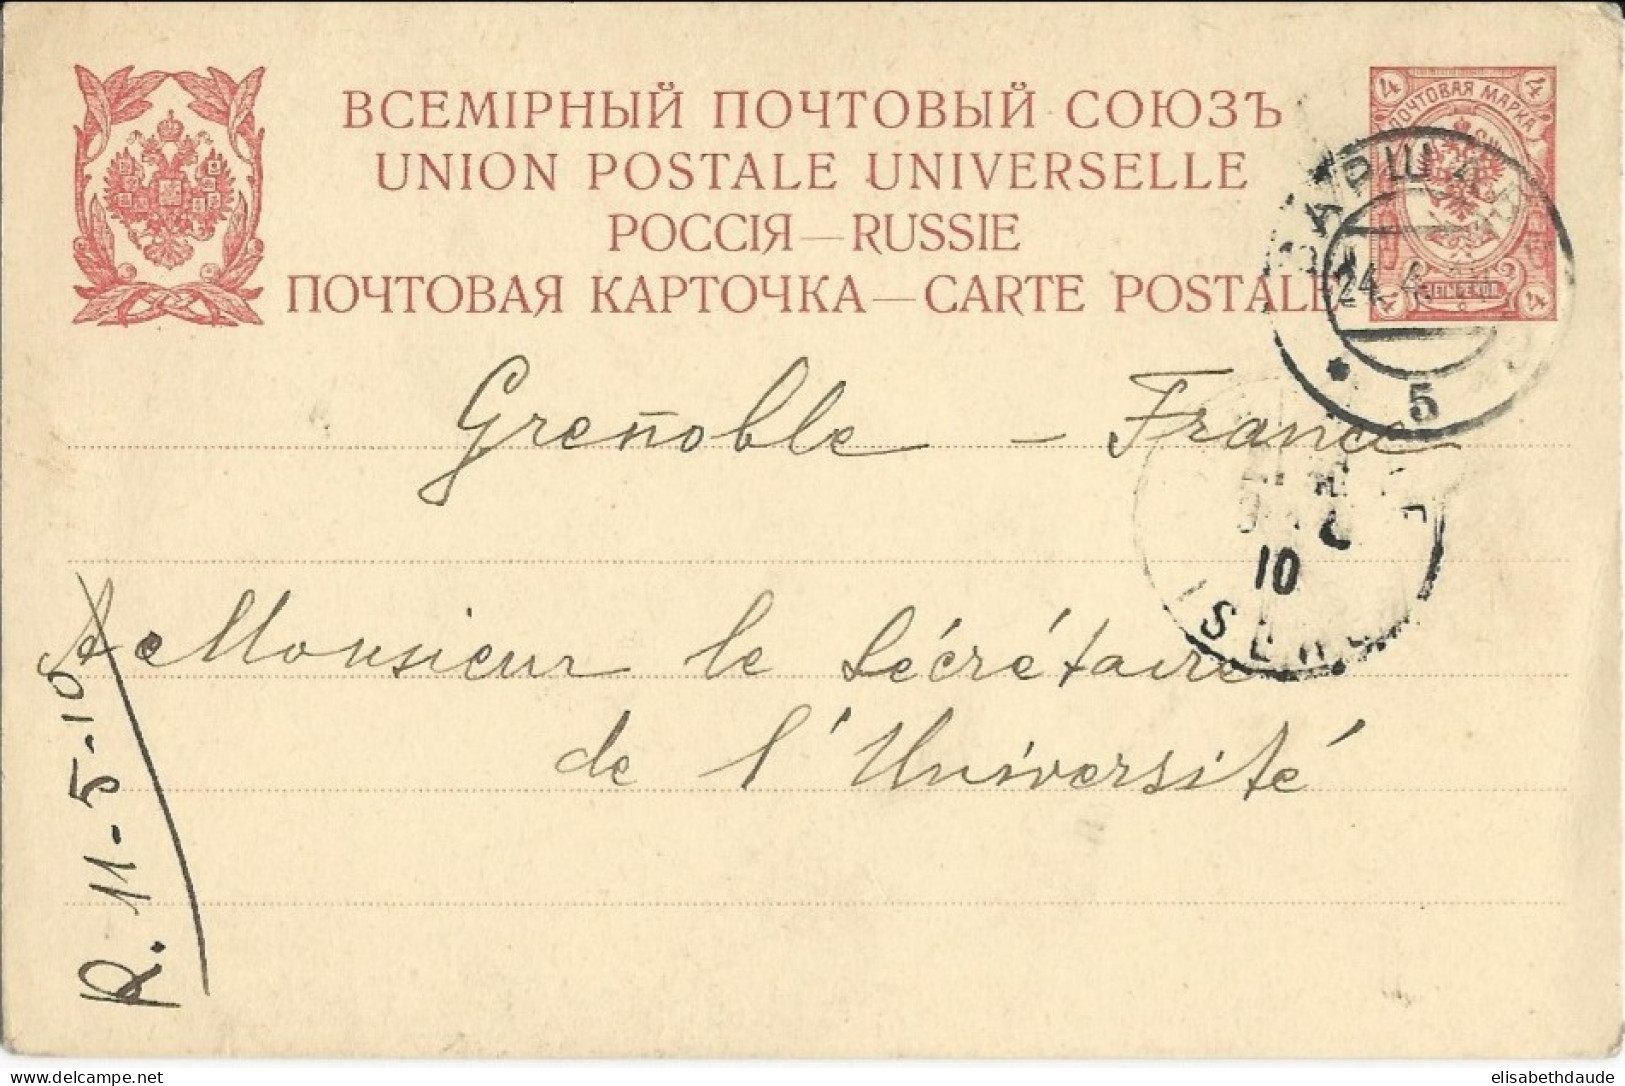 ВСЕМІРНЫЙ ПОЧТОВЫЙ СОЮЗЪ
UNION POSTALE UNIVERSELLE
РОССІЯ — RUSSIE
ПОЧТОВАЯ КАРТОЧКА — CARTE POSTALE
4 4
ПОЧТОВАЯ МАРКА
4 4
ВАРШАВА
24.4.
5
Grenoble - France
10
ISERE
A Monsieur le Sécrétaire
de l'Université
R. 11-5-10
delcampe.net
elisabethdaude